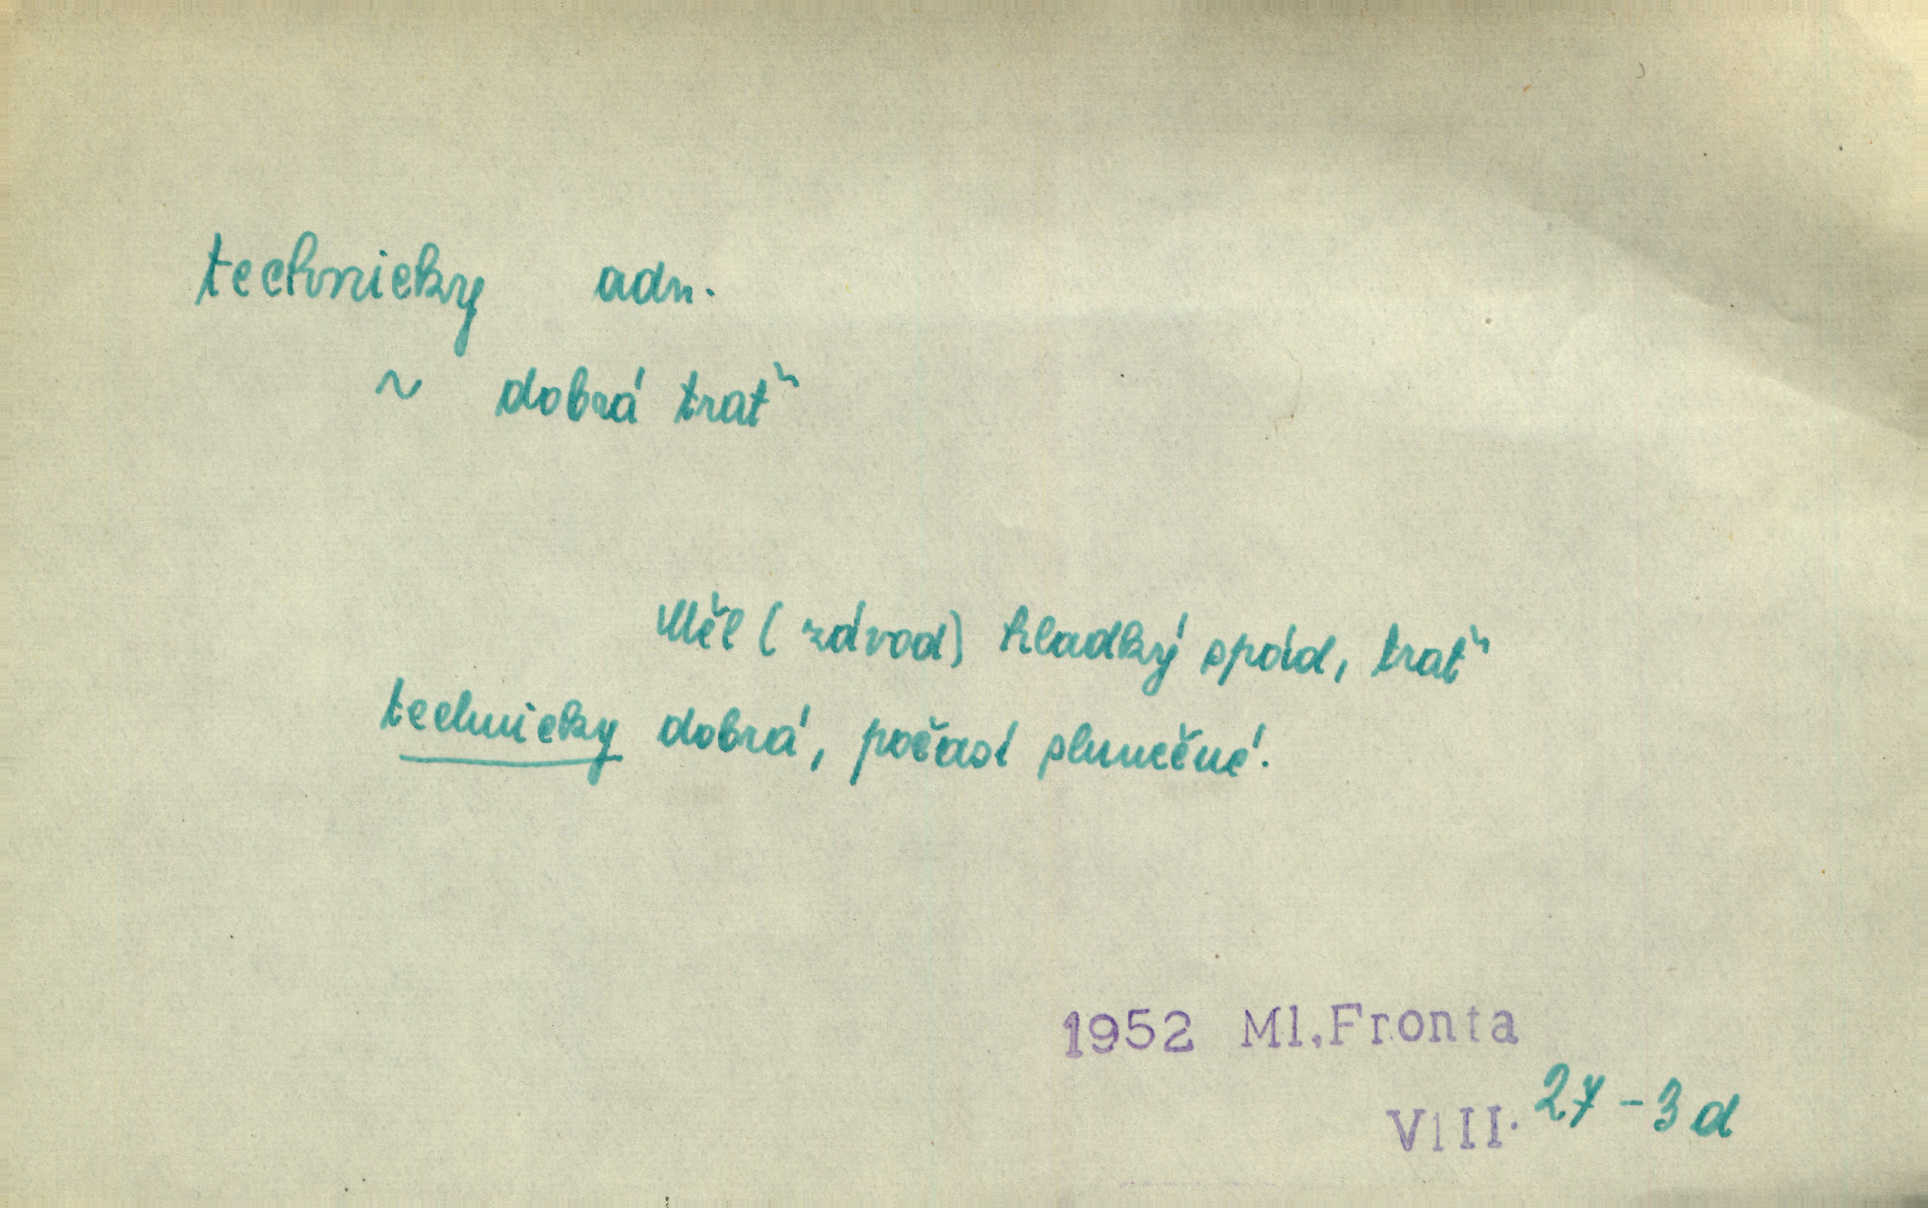 technicky adv.
~ dobrá trať
Měl (závod) hladký spád, trať
technicky dobrá, počasí slunečné.
1952 Ml.Fronta
VIII. 27-3d